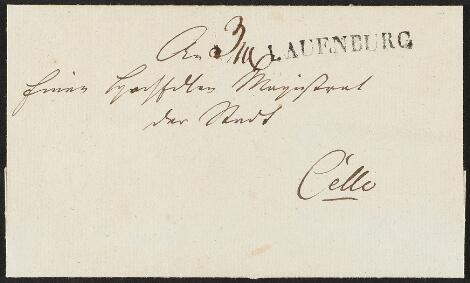 An 3/III LAUENBURG
Einen Hochedlen Magistrat
der Stadt
Celle